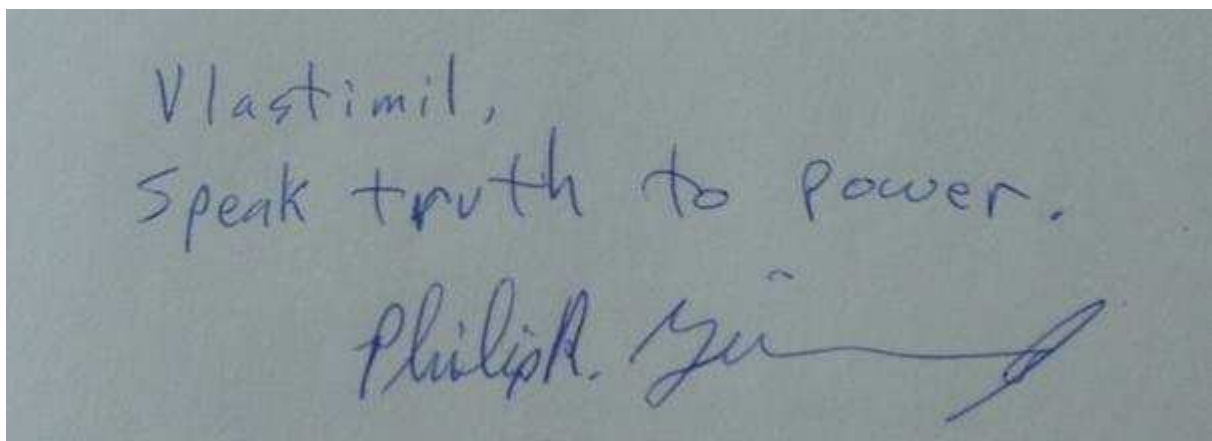 Vlastimil,
Speak truth to power.
Philip R.